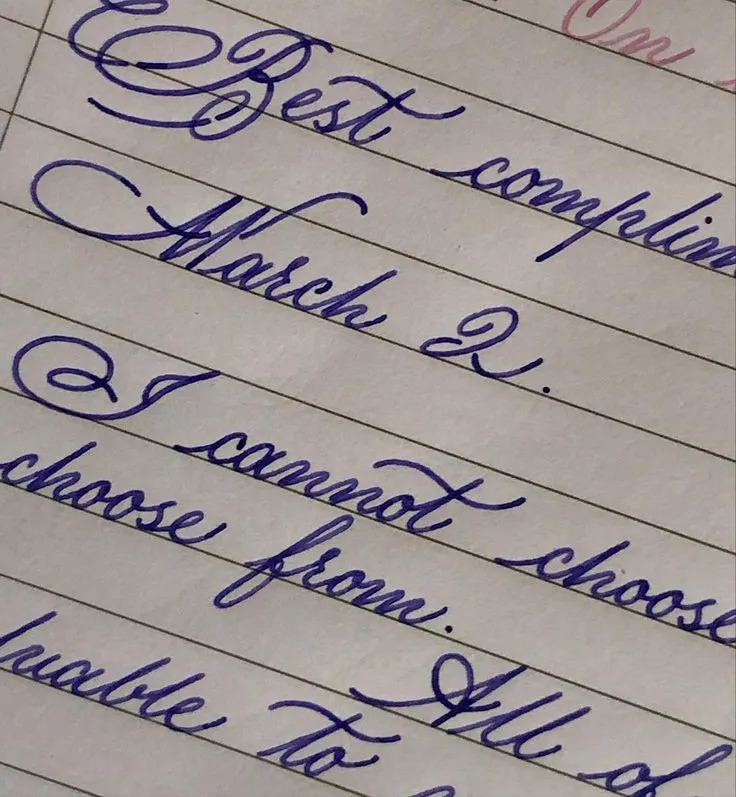 On
Best complim
March 2.
I cannot choose
choose from.
All of
luable to